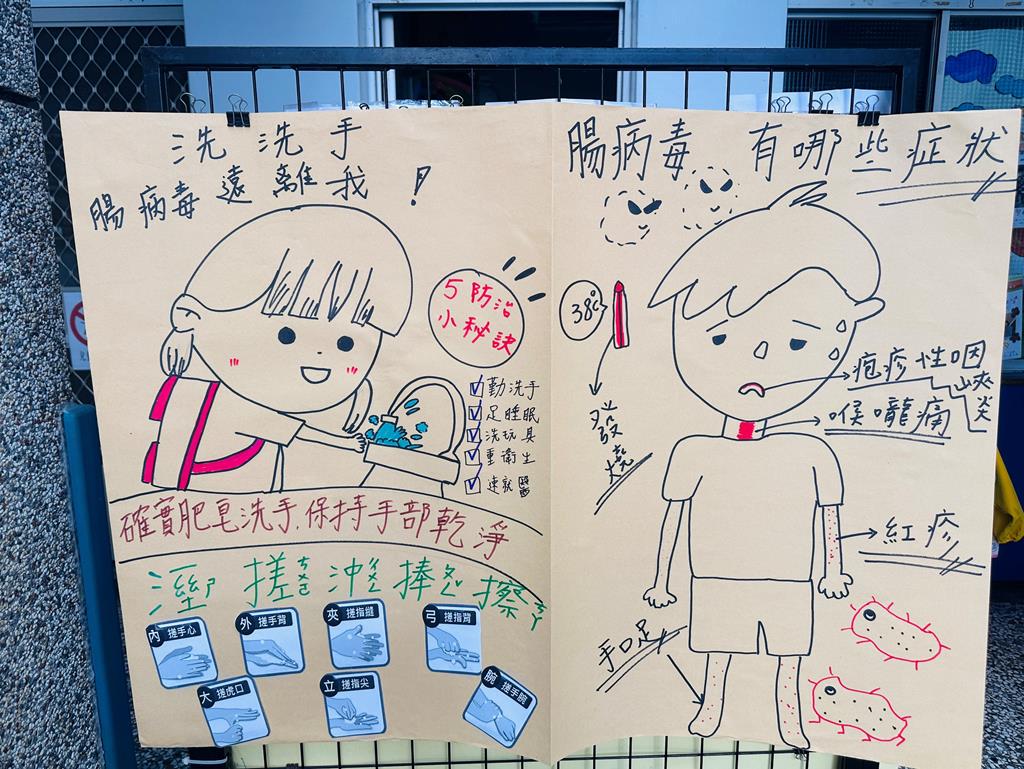 洗洗手
腸病毒遠離我！
5防治
小秘訣
勤洗手
足睡眠
洗玩具
重衛生
速就醫
確實肥皂洗手,保持手部乾淨
溼ㄕ 搓ㄘㄨㄛ 沖ㄔㄨㄥ 捧ㄆㄥˇ 擦ㄘㄚ
內 搓手心
外 搓手背
夾 搓指縫
弓 搓指背
大 搓虎口
立 搓指尖
腕 搓手腕
腸病毒 有哪些症狀
38℃
發燒
疱疹性咽峽炎
喉嚨痛
紅疹
手口足